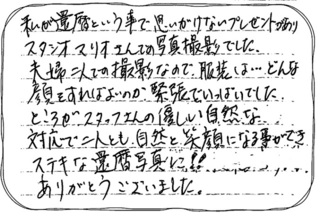 私が還暦という事で思いがけないプレゼントがあり
スタジオマリオさんでの写真撮影でした。
夫婦二人での撮影なので、服装は…どんな
顔をすればよいのか、緊張でいっぱいでした。
ところがスタッフさんの優しい自然な
対応で二人とも自然と笑顔になる事ができ
ステキな還暦写真に!!
ありがとうございました。